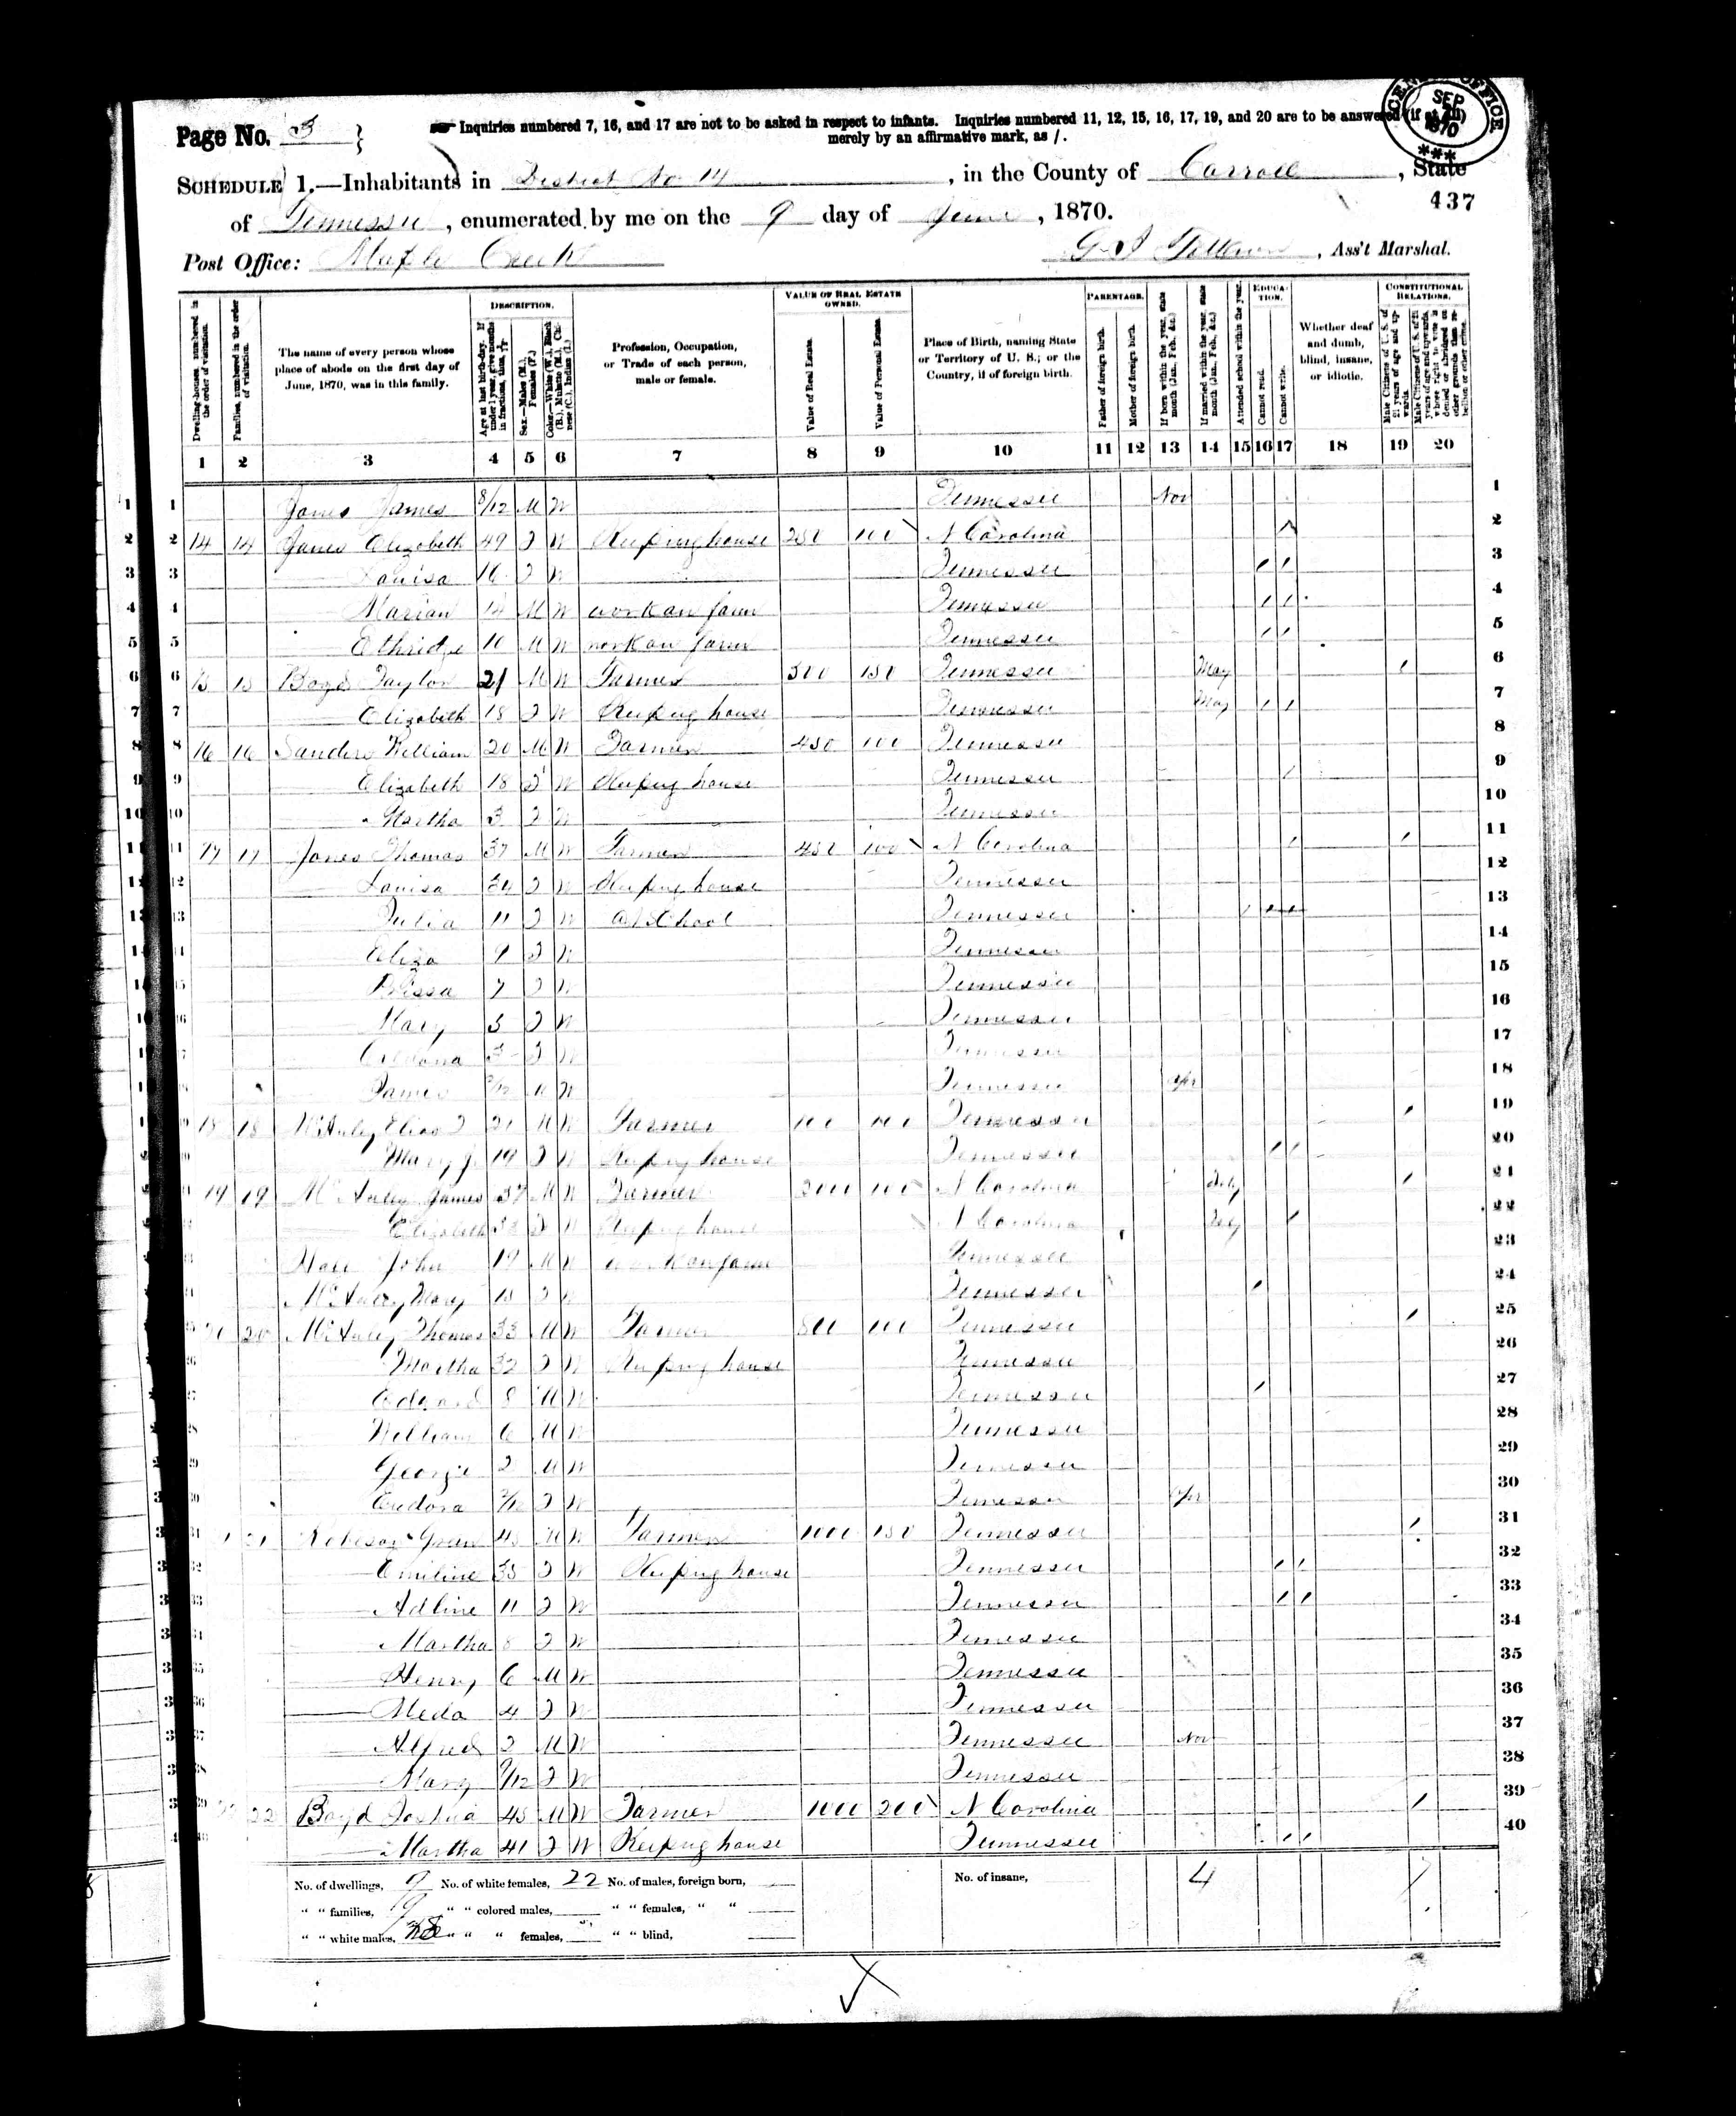 Page No. 3
Inquiries numbered 7, 16, and 17 are not to be asked in respect to infants. Inquiries numbered 11, 12, 15, 16, 17, 19, and 20 are to be answered (if at all)
merely by an affirmative mark, as /.
CENSUS OFFICE SEP 1870
SCHEDULE 1.—Inhabitants in District No 14, in the County of Carroll, State
437
of Tennessee, enumerated by me on the 9 day of June, 1870.
Post Office: Maple Creek
, Ass't Marshal.
Dwelling-houses, numbered in the order of visitation.
Families, numbered in the order of visitation.
The name of every person whose place of abode on the first day of June, 1870, was in this family.
DESCRIPTION.
Age at last birth-day. If under 1 year, give months in fractions, thus, 3/12
Sex.—Males (M.), Females (F.)
Color.—White (W.), Black (B.), Mulatto (M.), Chinese (C.), Indian (I.)
Profession, Occupation, or Trade of each person, male or female.
VALUE OF REAL ESTATE OWNED.
Value of Real Estate.
Value of Personal Estate.
Place of Birth, naming State or Territory of U. S.; or the Country, if of foreign birth.
PARENTAGE.
Father of foreign birth.
Mother of foreign birth.
If born within the year, state month (Jan., Feb., &c.)
If married within the year, state month (Jan., Feb., &c.)
EDUCATION.
Attended school within the year.
Cannot read.
Cannot write.
Whether deaf and dumb, blind, insane, or idiotic.
CONSTITUTIONAL RELATIONS.
Male Citizens of U. S. of 21 years of age and upwards.
Male Citizens of U. S. of 21 years of age and upwards, whose right to vote is denied or abridged on other grounds than rebellion or other crime.
1 2 3 4 5 6 7 8 9 10 11 12 13 14 15 16 17 18 19 20
1 Jones James 8/12 M W Tennessee Nov 1
2 14 14 Jones Elizabeth 49 F W Keeping house 250 100 N Carolina / 2
3 Louisa 16 F W Tennessee / / 3
4 Marian 14 M W work on farm Tennessee / / 4
5 Ethridge 10 M W work on farm Tennessee / / 5
6 15 15 Boyd Taylor 21 M W Farmer 300 150 Tennessee May / 6
7 Elizabeth 18 F W Keeping house Tennessee May / / 7
8 16 16 Sanders William 20 M W Farmer 450 100 Tennessee 8
9 Elizabeth 18 F W Keeping house Tennessee / 9
10 Martha 3 F W Tennessee 10
11 17 17 Jones Thomas 37 M W Farmer 100 N Carolina / / 11
12 Louisa 34 F W Keeping house Tennessee 12
13 Julia 11 F W At School Tennessee / / / 13
14 Eliza 9 F W Tennessee 14
15 7 F W Tennessee 15
16 Mary 5 F W Tennessee 16
17 3 F W Tennessee 17
18 James M W Tennessee Apr 18
19 18 18 McAuley Elias 21 M W Farmer 100 100 Tennessee / 19
20 Mary J. 19 F W Keeping house Tennessee / / 20
21 19 19 McAuley James 37 M W Farmer 2000 100 N Carolina / 21
22 Elizabeth 38 F W Keeping house N Carolina / 22
23 John 19 M W work on farm Tennessee 23
24 McAuley Mary F W Tennessee / 24
25 20 20 McAuley Thomas 33 M W Farmer 800 100 Tennessee / 25
26 Martha 32 F W Keeping house Tennessee 26
27 Edward 8 M W Tennessee / 27
28 William 6 M W Tennessee 28
29 George 2 M W Tennessee 29
30 Eudora 2/12 F W Tennessee Apr 30
31 21 21 Green 45 M W Farmer 1000 150 Tennessee / 31
32 Emiline 35 F W Keeping house Tennessee / / 32
33 Adline 11 F W Tennessee / / 33
34 Martha 8 F W Tennessee 34
35 Henry 6 M W Tennessee 35
36 Meda 4 F W Tennessee 36
37 Alfred 2 M W Tennessee Nov 37
38 Mary 9/12 F W Tennessee 38
39 22 22 Boyd Joshua 45 M W Farmer 1000 200 N Carolina / 39
40 Martha 41 F W Keeping house Tennessee / / 40
No. of dwellings, 9 No. of white females, 22 No. of males, foreign born, No. of insane, 4
" " families, 9 " " colored males, " " females, " "
" " white males, 18 " " " females, " " blind,